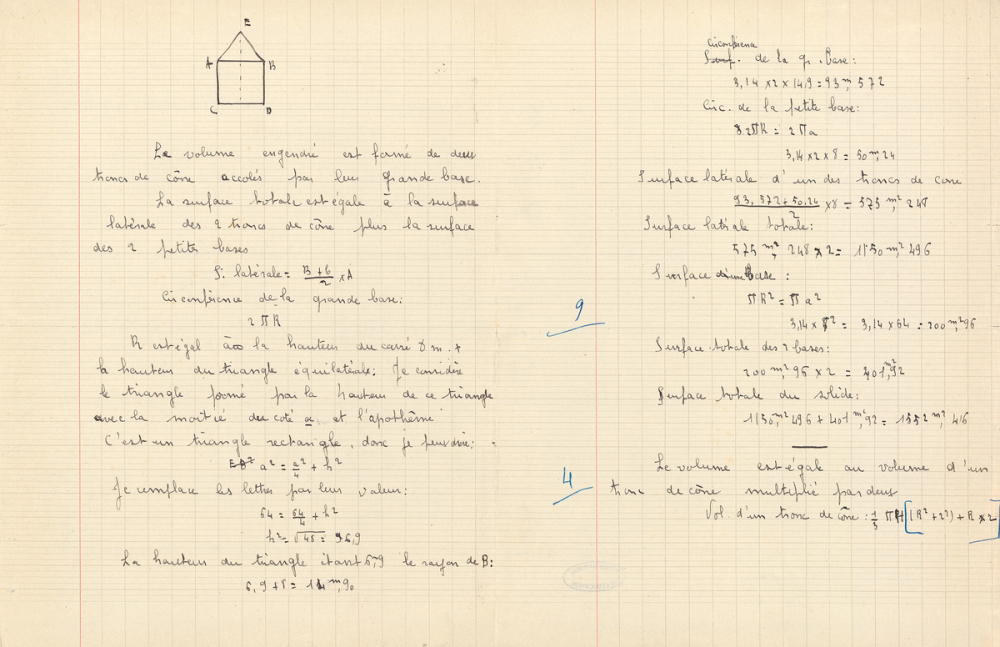 E
A B
C D
Le volume engendré est formé de deux
troncs de cône accolés par leur grande base.
La surface totale est égale à la surface
latérale des 2 troncs de cône plus la surface
des 2 petites bases
S. latérale = B + b / 2 x A
Circonférence de la grande base:
2 π R
R est égal à la hauteur du carré 8 m. +
la hauteur du triangle équilatérale; Je considère
le triangle formé par la hauteur de ce triangle
avec la moitié du coté a et l'apothème
C'est un triangle rectangle, donc je peux dire:
a² = a²/4 + h²
Je remplace les lettres par leur valeur:
64 = 64/4 + h²
h² = √48 = 6,9
La hauteur du triangle étant 6,9 le rayon de B:
6,9 + 8 = 14 m,90
9
4
Circonférence
de la gr. Base:
3,14 x 2 x 14,9 = 93 m, 572
Circ. de la petite base:
2πR = 2πa
3,14 x 2 x 8 = 50 m, 24
Surface latérale d'un des troncs de cone
93,572 + 50,24 / 2 x 8 = 575 m², 248
Surface latérale totale:
575 m², 248 x 2 = 1150 m² 496
Surface Base :
π R² = π a²
3,14 x 8² = 3,14 x 64 = 200 m², 96
Surface totale des 2 bases:
200 m², 96 x 2 = 401 m², 92
Surface totale du solide:
1150, m² 496 + 401 m², 92 = 1552 m², 416
Le volume est égale au volume d'un
tronc de cône multiplié par deux
Vol. d'un tronc de cône : 1/3 πH [(R² + r²) + R x r]